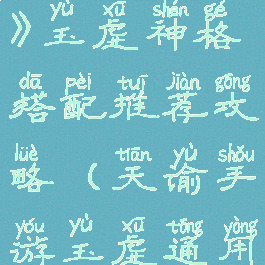 yù xū shén gé
》玉虚神格
dā pèi tuī jiàn gōng
搭配推荐攻
lüè tiān yù shǒu
略(天谕手
yóu yù xū tōng yòng
游玉虚通用